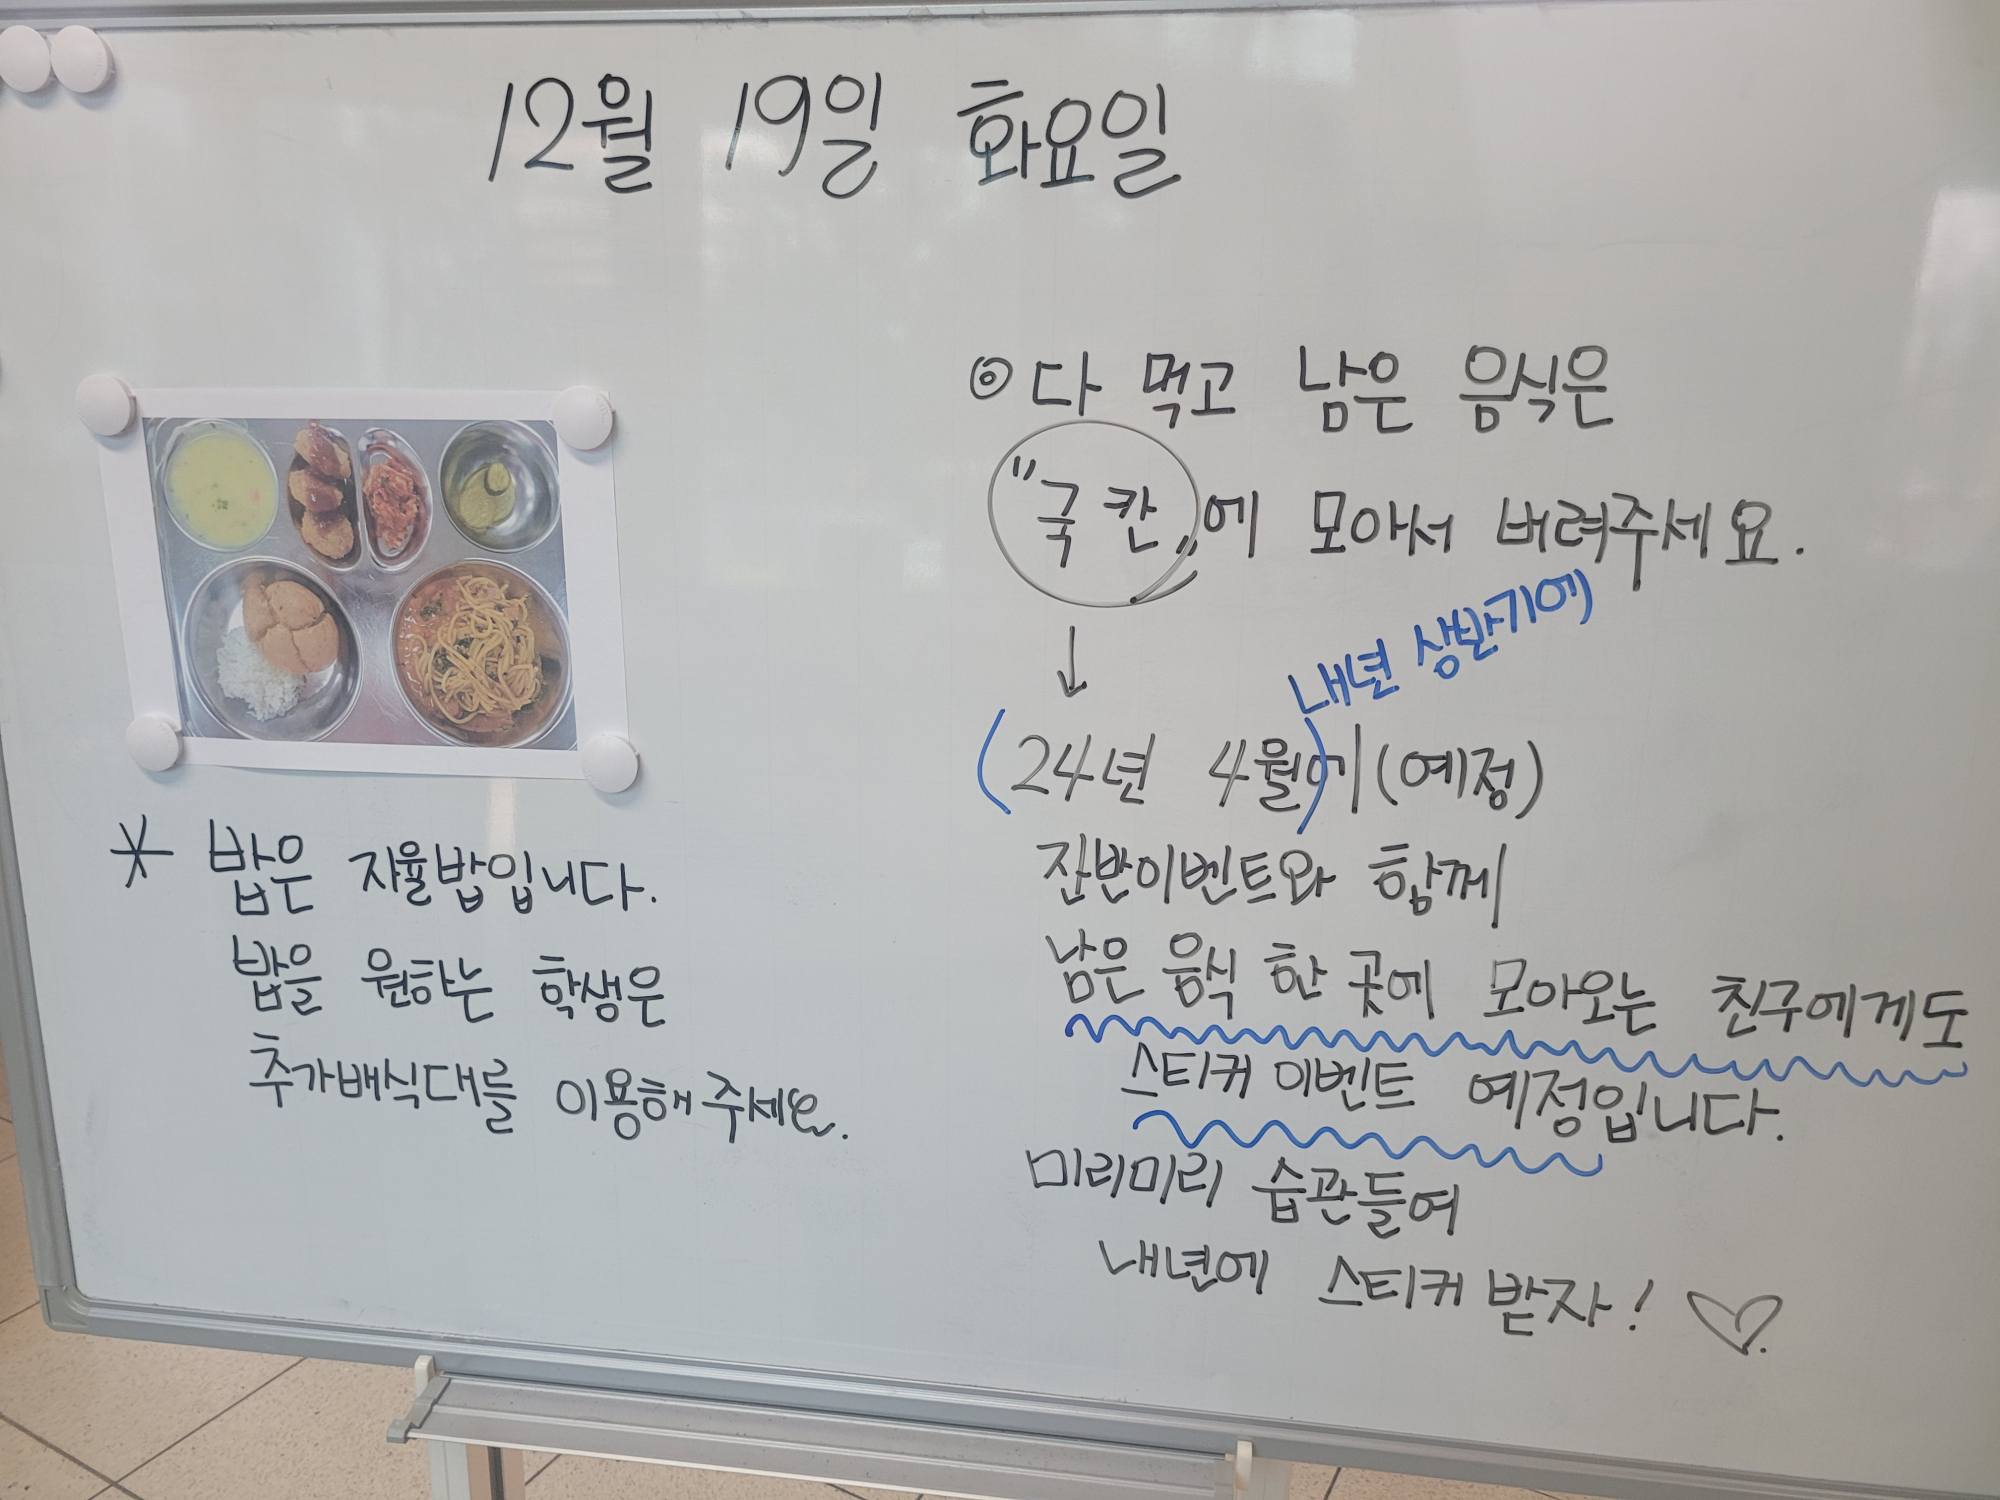 12월 19일 화요일
◎ 다 먹고 남은 음식은
"국 칸"에 모아서 버려주세요.
↓
내년 상반기에
(24년 4월)에 (예정)
잔반이벤트와 함께
남은 음식 한 곳에 모아오는 친구에게도
스티커 이벤트 예정입니다.
미리미리 습관들여
내년에 스티커 받자! ♡
* 밥은 자율밥입니다.
밥을 원하는 학생은
추가배식대를 이용해주세요.